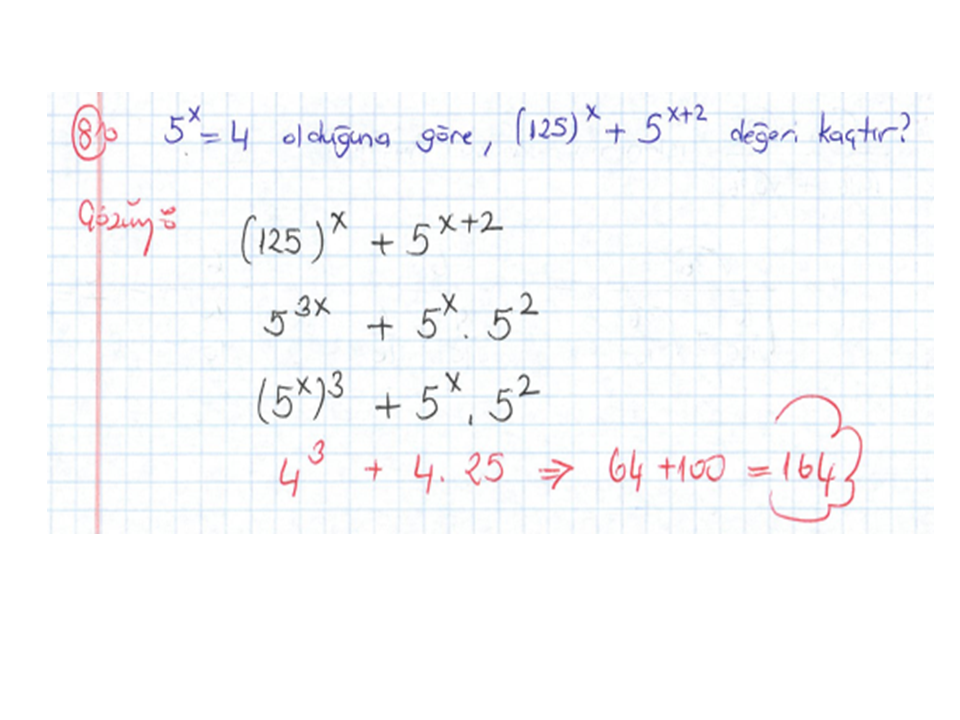 8) 5^x = 4 olduğuna göre, (125)^x + 5^(x+2) değeri kaçtır?
Çözüm:
(125)^x + 5^(x+2)
5^(3x) + 5^x . 5^2
(5^x)^3 + 5^x . 5^2
4^3 + 4 . 25 ⇒ 64 + 100 = 164